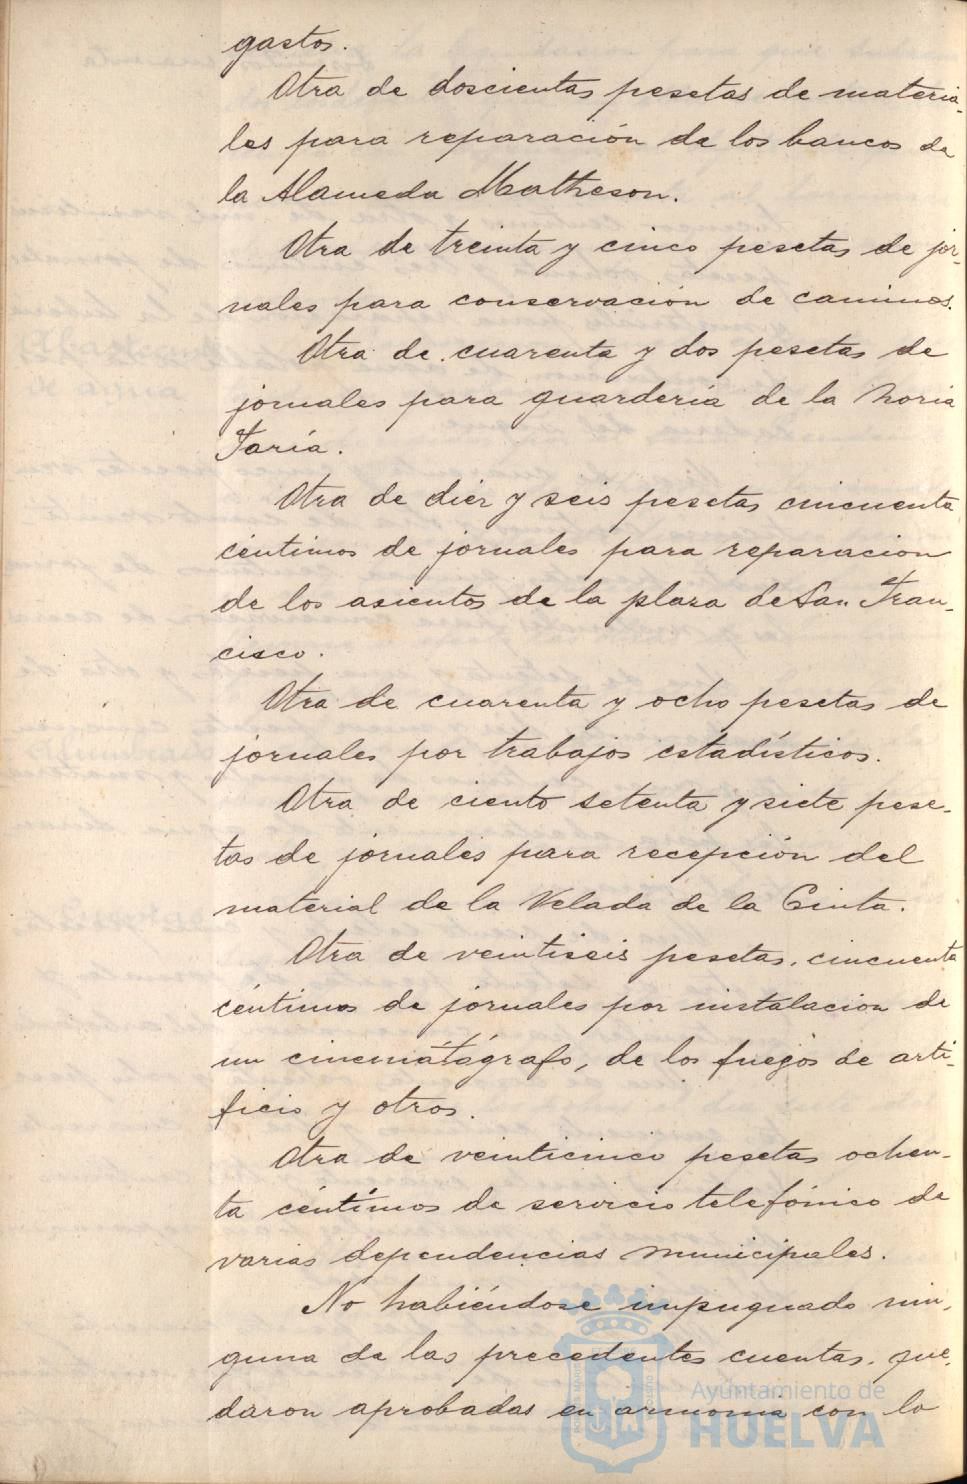 gastos.
Otra de doscientas pesetas de materia-
les para reparación de los bancos de
la Alameda Matheson.
Otra de treinta y cinco pesetas de jor-
nales para conservación de caminos.
Otra de cuarenta y dos pesetas de
jornales para guardería de la Noria
Taría.
Otra de diez y seis pesetas cincuenta
céntimos de jornales para reparacion
de los asientos de la plaza de San Fran-
cisco.
Otra de cuarenta y ocho pesetas de
jornales por trabajos estadísticos.
Otra de ciento setenta y siete pese-
tas de jornales para recepción del
material de la Velada de la Cinta.
Otra de veintiseis pesetas, cincuenta
céntimos de jornales por instalacion de
un cinemátógrafo, de los fuegos de arti-
ficio y otros.
Otra de veinticinco pesetas ochen-
ta céntimos de servicio telefónico de
varias dependencias municipales.
No habiéndose impugnado nin-
guna de las precedentes cuentas, que-
daron aprobadas en armonia con lo
Ayuntamiento de
HUELVA